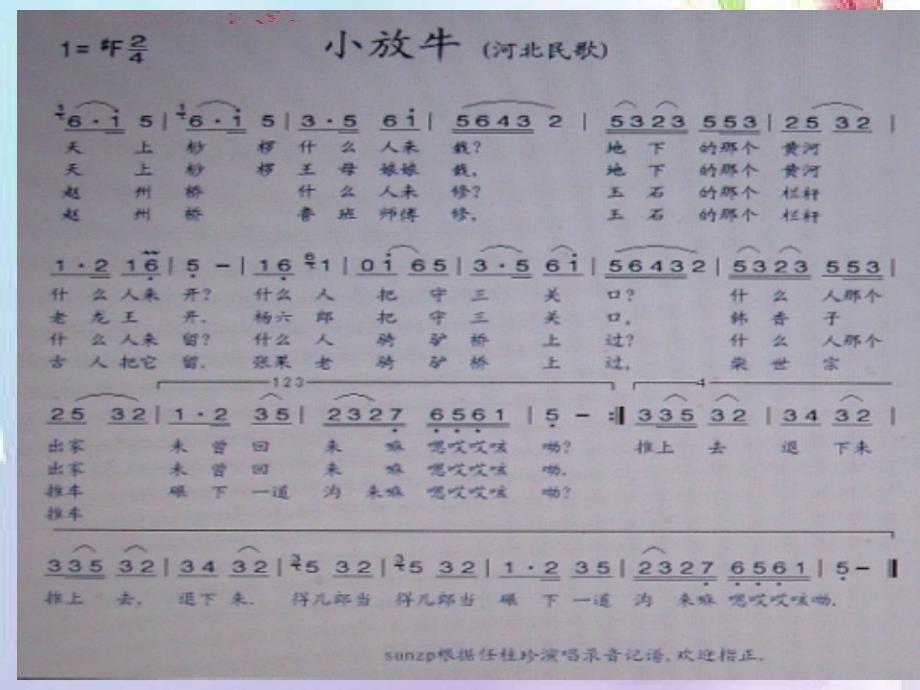 1=♯F 2/4 小放牛 (河北民歌)
6·i 5 | 6·i 5 | 3·5 6i | 56432 | 5323 553 | 25 32 |
天上桫椤什么人来栽? 地下的那个黄河
天上桫椤王母娘娘栽, 地下的那个黄河
赵州桥什么人来修? 玉石的那个栏杆
赵州桥鲁班师傅修, 玉石的那个栏杆
1·2 16 | 5 – | 16 1 | 0i 65 | 3·5 6i | 56432 | 5323 553 |
什么人来开? 什么人把守三关口? 什么人那个
老龙王开. 杨六郎把守三关口, 韩香子
什么人来留? 什么人骑驴桥上过? 什么人那个
古人把它留. 张果老骑驴桥上过, 柴世宗
123 4
25 32 | 1·2 35 | 2327 6561 | 5 – :‖ 335 32 | 34 32 |
出家未曾回来嘛嗯哎哎咳呦? 推上去退下来
出家未曾回来嘛嗯哎哎咳呦.
推车碾下一道沟来嘛嗯哎哎咳呦?
推车
335 32 | 34 32 | 5 32 | 5 32 | 1·2 35 | 2327 6561 | 5 – ‖
推上去, 退下来. 得儿郎当得儿郎当碾下一道沟来嘛嗯哎哎咳呦.
sunzp根据任桂珍演唱录音记谱,欢迎指正.